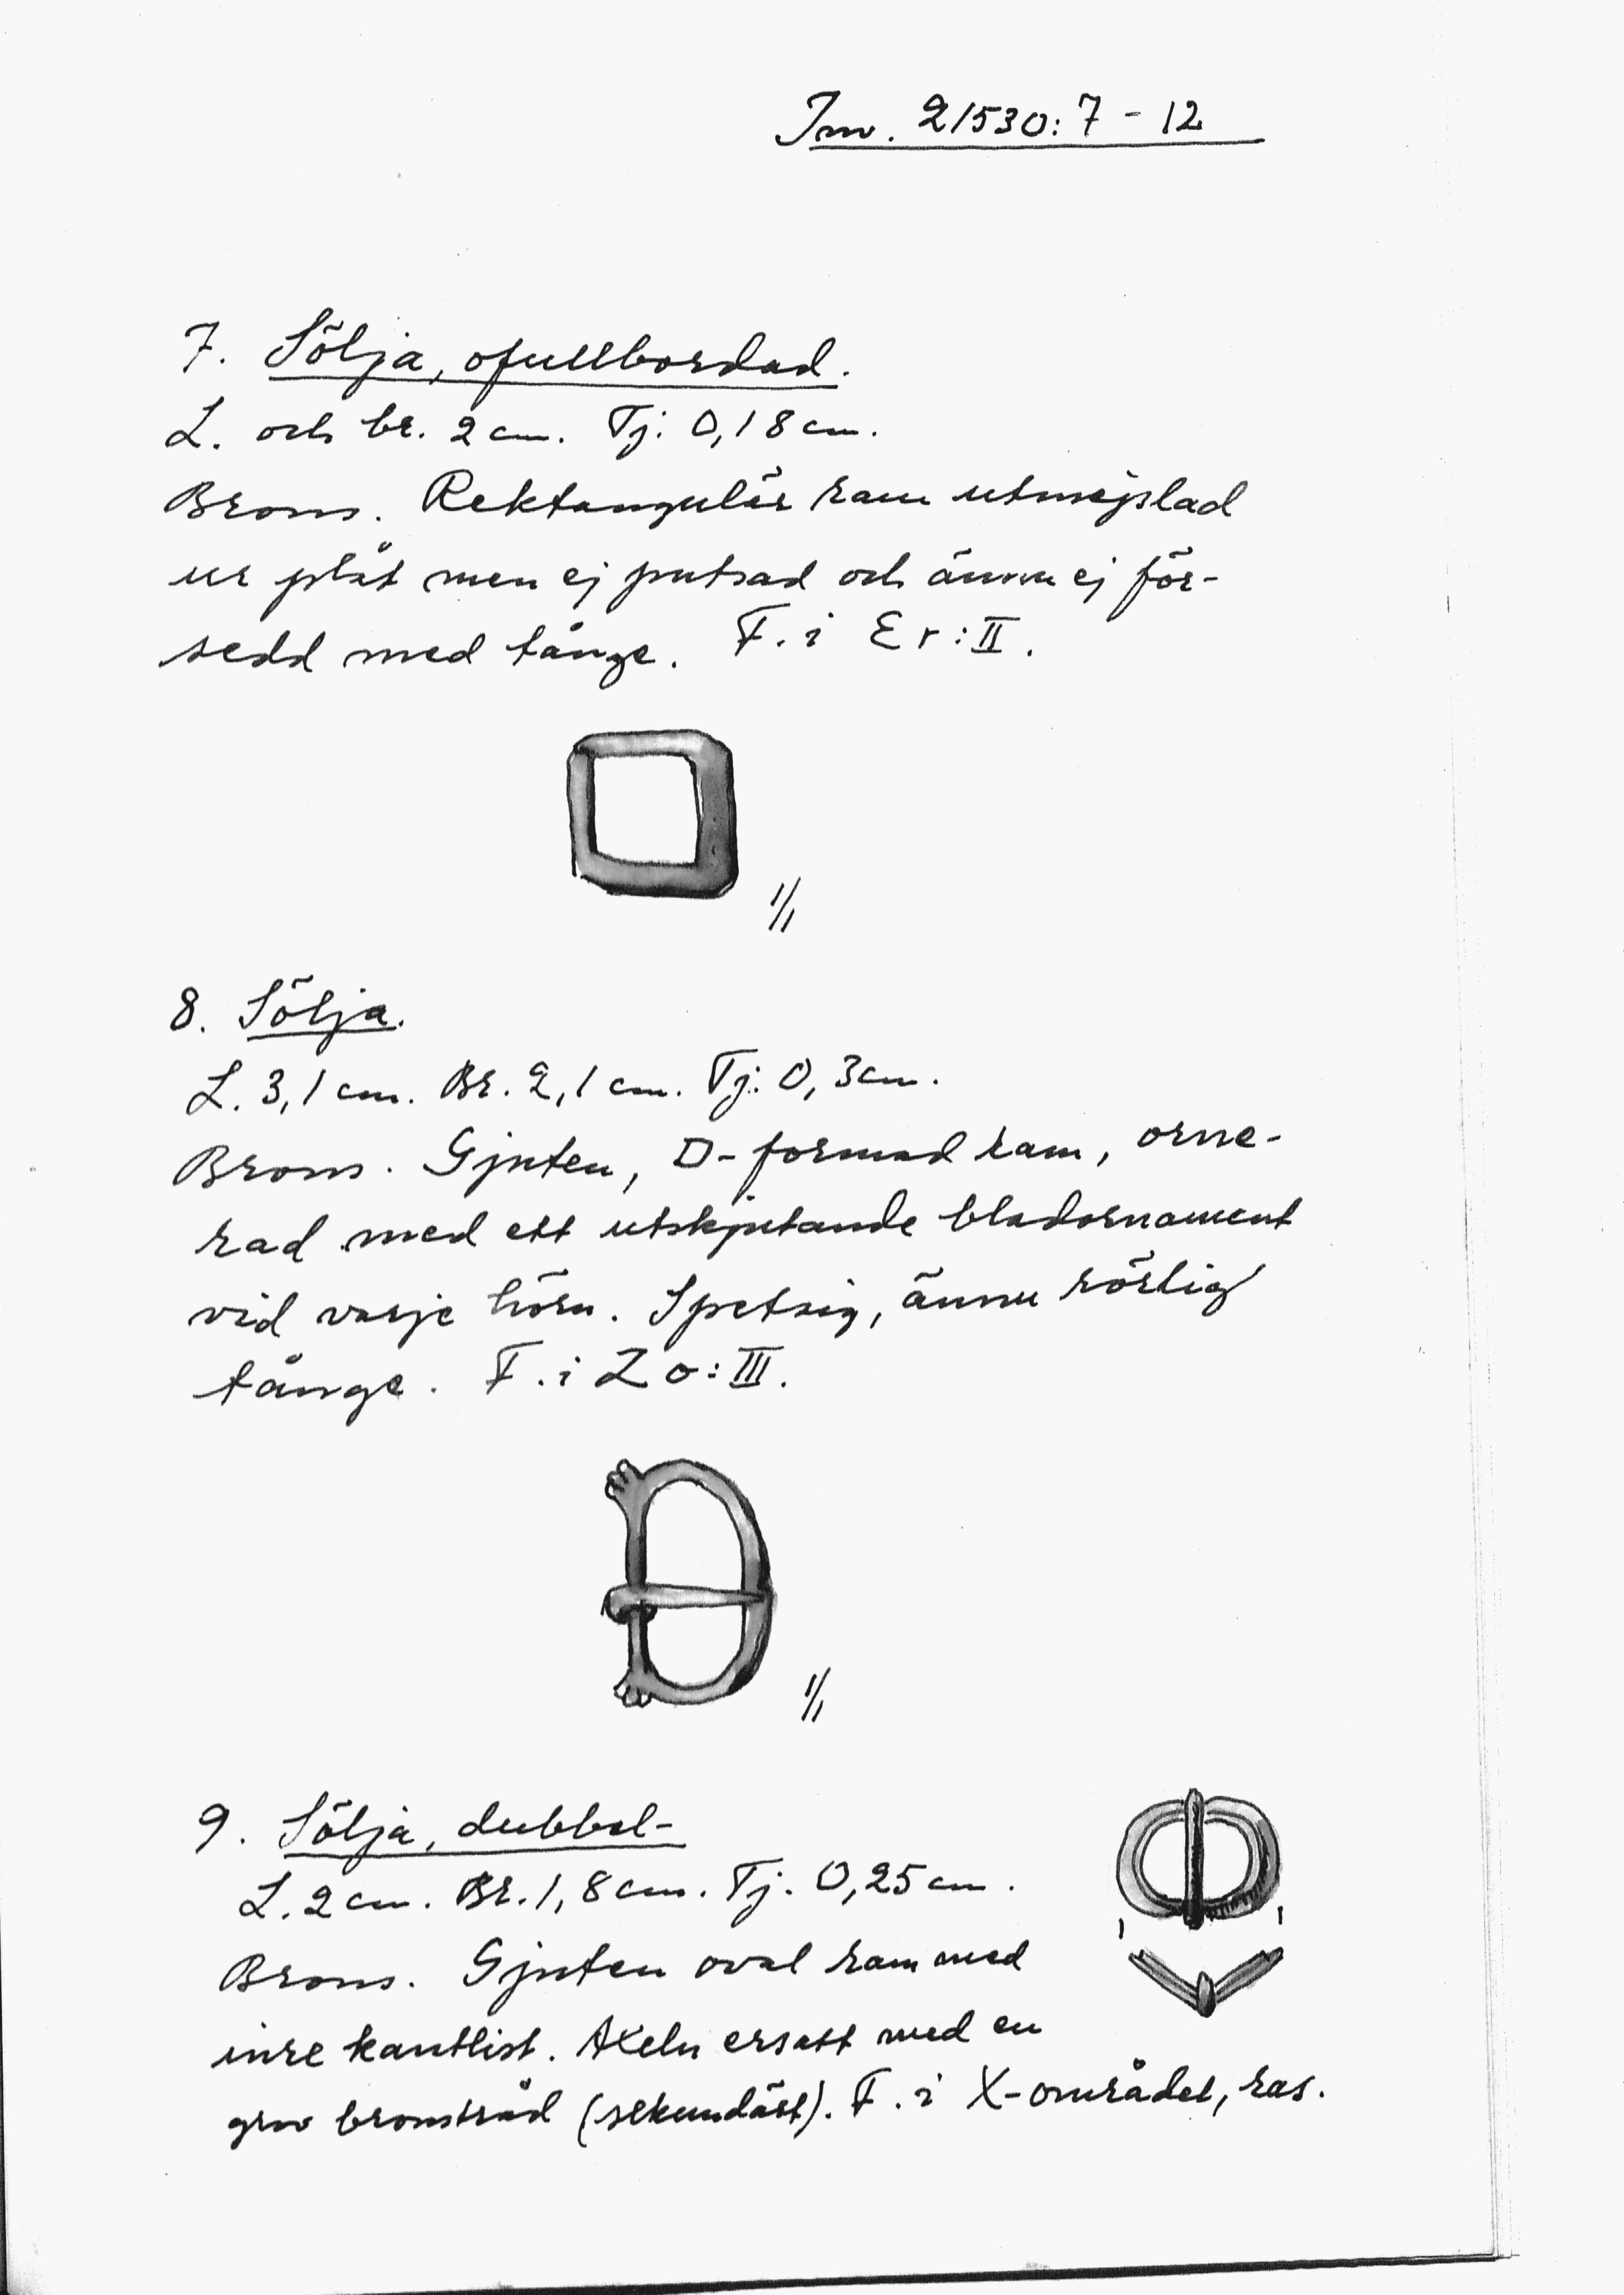 Inv. 21530:7-12
7. Sölja, ofullbordad.
L. och br. 2 cm. Tj: 0,18 cm.
Brons. Rektangulär ram utmejslad
ur plåt men ej putsad och ännu ej för-
sedd med tånge. F. i Er:II.
1/1
8. Sölja.
L. 3,1 cm. Br. 2,1 cm. Tj: 0,3 cm.
Brons. Gjuten, D-formad ram, orne-
rad med ett utskjutande bladornament
vid varje hörn. Spetsig, ännu rörlig
tånge. F. i Zo:III.
1/1
9. Sölja, dubbel-
L. 2 cm. Br. 1,8 cm. Tj. 0,25 cm.
Brons. Gjuten oval ram med
inre kantlist. Axeln ersatt med en
grov bronstråd (sekundärt). F. i X-området, ras.